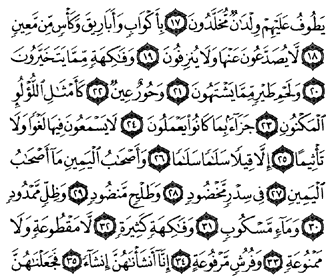 يَطُوفُ عَلَيْهِمْ وِلْدَٰنٌ مُّخَلَّدُونَ ١٧ بِأَكْوَابٍ وَأَبَارِيقَ وَكَأْسٍ مِّن مَّعِينٍ
١٨ لَّا يُصَدَّعُونَ عَنْهَا وَلَا يُنزِفُونَ ١٩ وَفَٰكِهَةٍ مِّمَّا يَتَخَيَّرُونَ
٢٠ وَلَحْمِ طَيْرٍ مِّمَّا يَشْتَهُونَ ٢١ وَحُورٌ عِينٌ ٢٢ كَأَمْثَٰلِ اللُّؤْلُؤِ
الْمَكْنُونِ ٢٣ جَزَاءً بِمَا كَانُوا يَعْمَلُونَ ٢٤ لَا يَسْمَعُونَ فِيهَا لَغْوًا وَلَا
تَأْثِيمًا ٢٥ إِلَّا قِيلًا سَلَٰمًا سَلَٰمًا ٢٦ وَأَصْحَٰبُ الْيَمِينِ مَا أَصْحَٰبُ
الْيَمِينِ ٢٧ فِي سِدْرٍ مَّخْضُودٍ ٢٨ وَطَلْحٍ مَّنضُودٍ ٢٩ وَظِلٍّ مَّمْدُودٍ
٣٠ وَمَاءٍ مَّسْكُوبٍ ٣١ وَفَٰكِهَةٍ كَثِيرَةٍ ٣٢ لَّا مَقْطُوعَةٍ وَلَا
مَمْنُوعَةٍ ٣٣ وَفُرُشٍ مَّرْفُوعَةٍ ٣٤ إِنَّا أَنشَأْنَٰهُنَّ إِنشَاءً ٣٥ فَجَعَلْنَٰهُنَّ